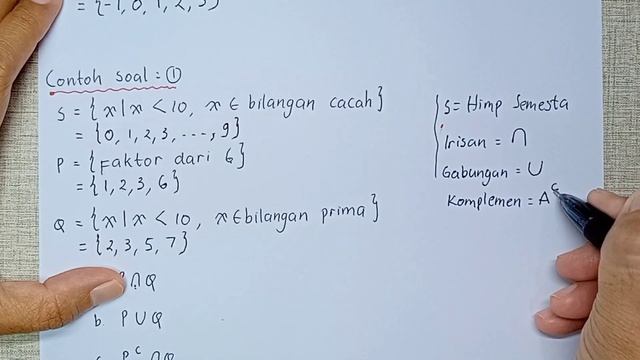 = {-1, 0, 1, 2, 3}
Contoh soal = ①
S = {x | x < 10, x ∈ bilangan cacah}
= {0, 1, 2, 3, ..., 9}
P = {Faktor dari 6}
= {1, 2, 3, 6}
Q = {x | x < 10, x ∈ bilangan prima}
= {2, 3, 5, 7}
P ∩ Q
b. P ∪ Q
c. Pᶜ ∩ Q
S = Himp Semesta
Irisan = ∩
Gabungan = ∪
Komplemen = Aᶜ